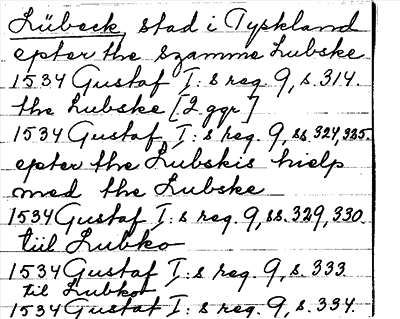 Lübeck, stad i Tyskland
epter the szamme Lubske
1534 Gustaf I:s reg. 9, s. 314.
the Lubske [2 ggr]
1534 Gustaf I:s reg. 9, ss. 324, 325.
epter the Lubskis hielp
med the Lubske
1534 Gustaf I:s reg. 9, ss. 329, 330
tiil Lubko
1534 Gustaf I:s reg. 9, s. 333
til Lubkor
1534 Gustaf I:s reg. 9, s. 334.